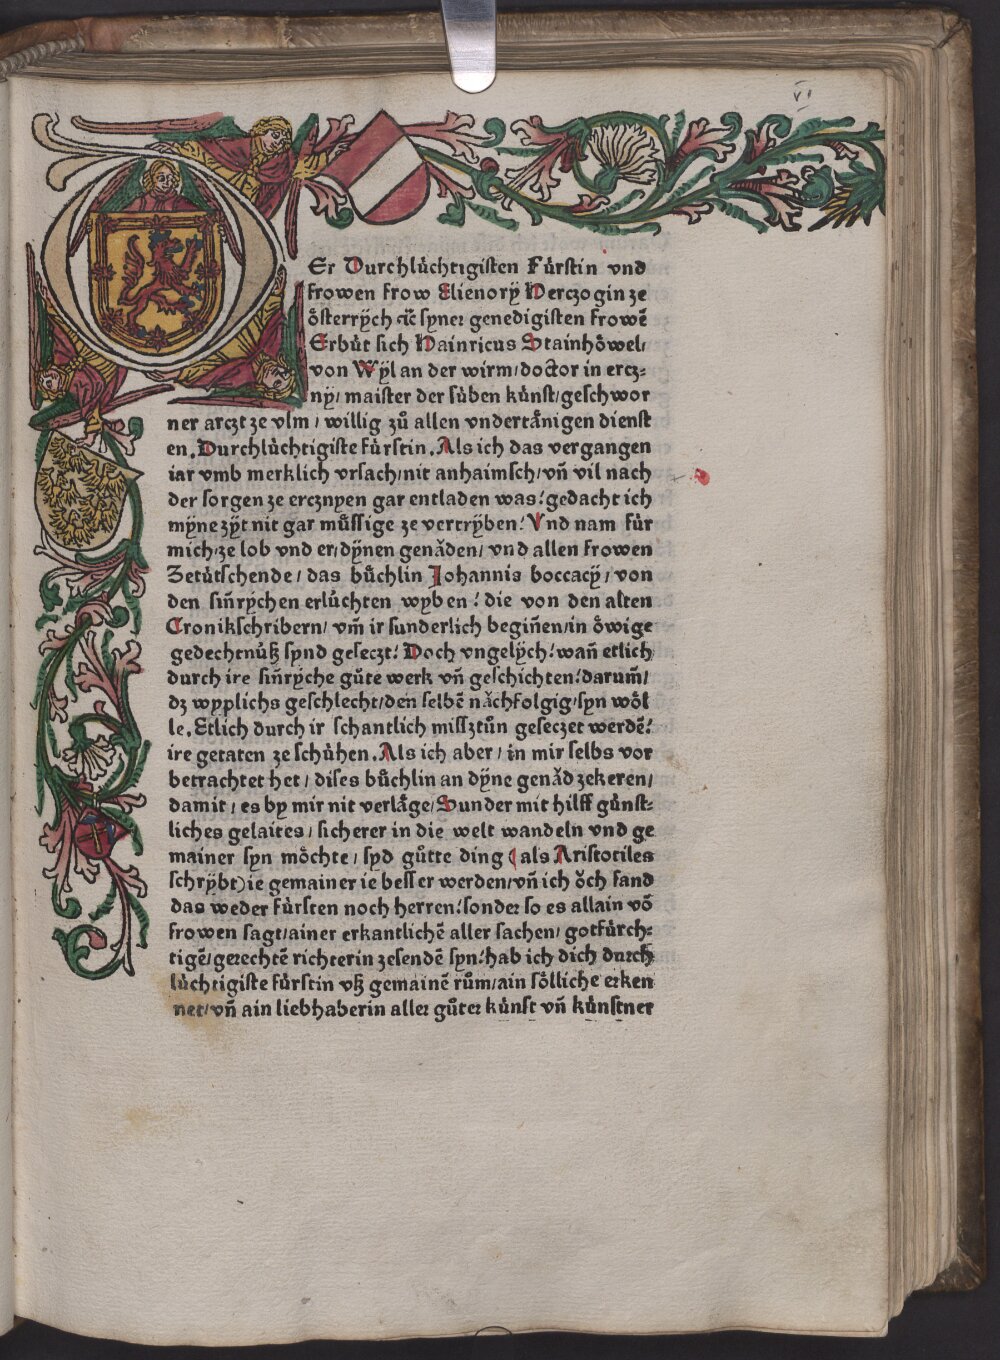 VI
Er Durchlüchtigisten Fürstin vnd
frowen frow Elienorÿ Herczogin ze
österrÿch ⁊c̄ syner genedigisten frowē
Erbüt sich Hainricus Stainhöwel/
von Wÿl an der wirm/doctor in ercz⸗
nÿ/ maister der süben künst/geschwor
ner arczt ze vlm / willig zů allen vndertånigen dienst
en. Durchlüchtigiste fürstin. Als ich das vergangen
iar vmb merklich vrsach/nit anhaimsch/vn̄ vil nach
der sorgen ze ercznyen gar entladen was: gedacht ich
mÿne zÿt nit gar müssige ze vertrÿben: Vnd nam für
mich/ze lob vnd er/dÿnen genåden/ vnd allen frowen
Zetütschende / das büchlin Johannis boccacÿ / von
den sin̄rÿchen erlüchten wyben : die von den alten
Cronikschribern/ vm̄ ir sunderlich begin̄en/in öwige
gedechtnüß synd geseczt: Doch vngelÿch: wan̄ etlich
durch ire sin̄rÿche gůte werk vn̄ geschichten: darum̄/
dz wyplichs geschlecht/den selbē nåchfolgig/syn wöl
le. Etlich durch ir schantlich missztůn geseczet werdē:
ire getaten ze schühen. Als ich aber / in mir selbs vor
betrachtet het / dises büchlin an dÿne genåd ze keren/
damit / es by mir nit verläge/ Sunder mit hilff günst⸗
liches gelaites / sicherer in die welt wandeln vnd ge
mainer syn möchte / syd gůtte ding (als Aristotiles
schrÿbt) ie gemainer ie besser werden/vn̄ ich öch fand
das weder fürsten noch herren: sonder so es allain vō
frowen sagt/ainer erkantlichē aller sachen/ gotfürch⸗
tigē/gerechtē richterin ze sendē syn: hab ich dich durch
lüchtigiste fürstin vß gemainē rům/ain sölliche erken
net/vn̄ ain liebhaberin aller gůter künst vn̄ künstner